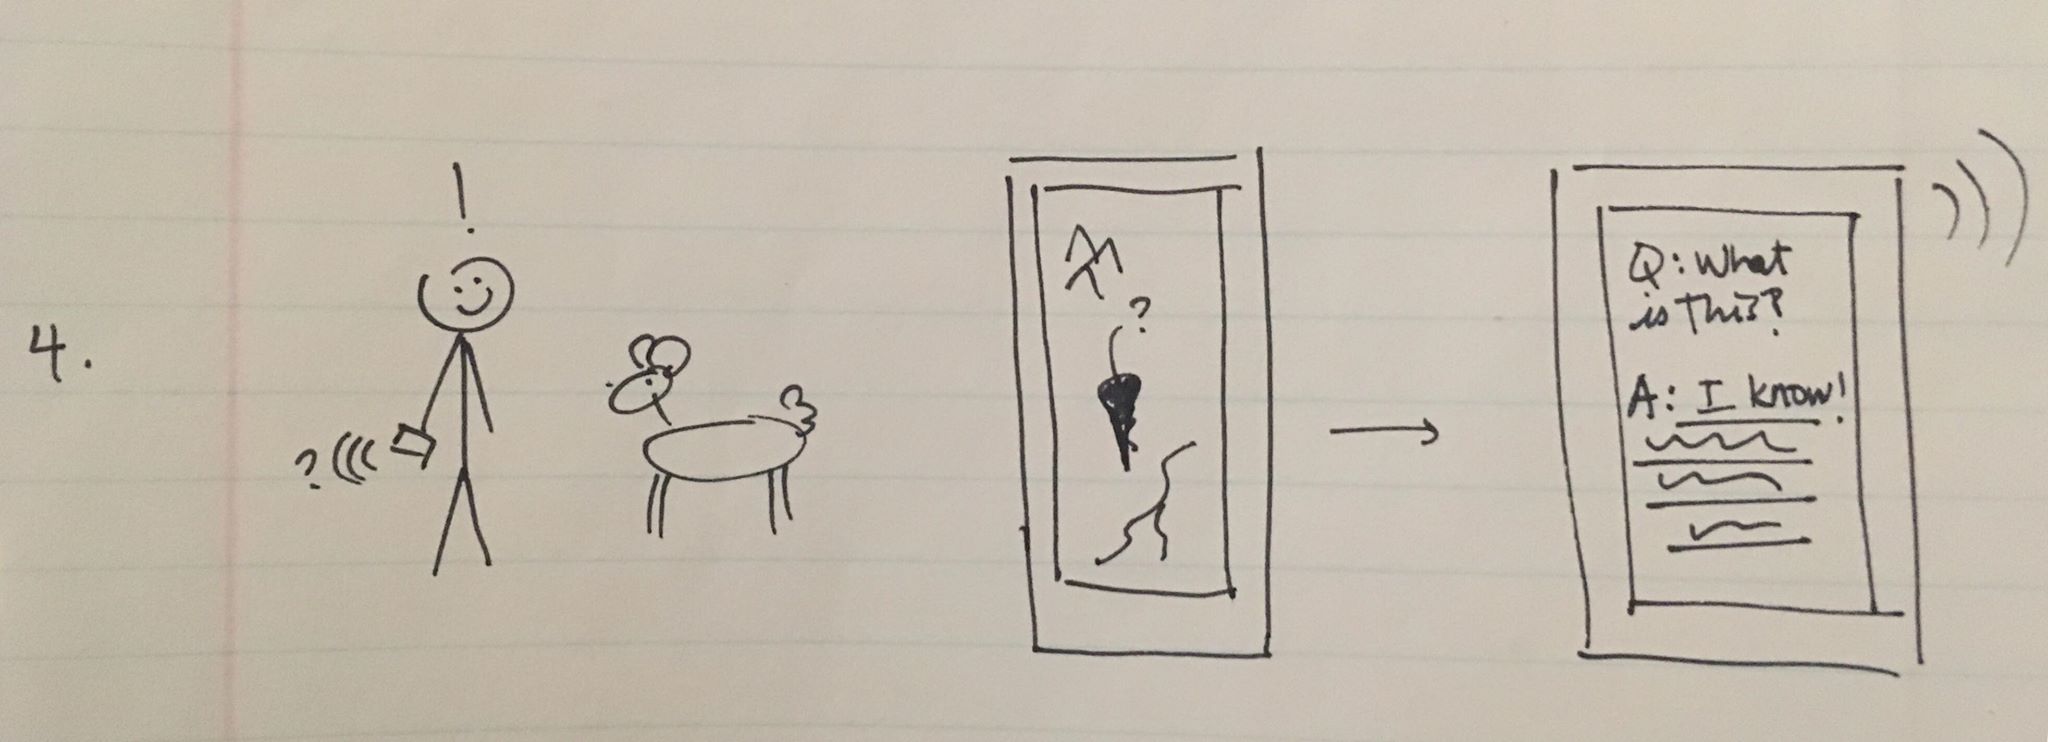 4.
!
?
?
Q: What
is this?
A: I know!